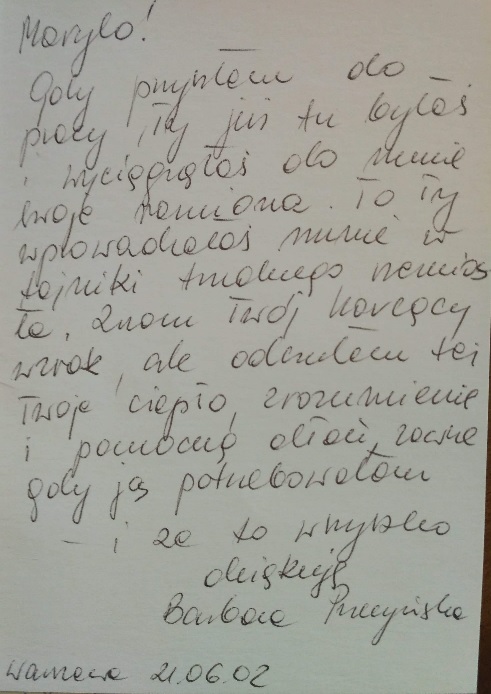 Marylo!
Gdy przyszłam do
pracy, Ty już tu byłaś
i wyciągnęłaś do mnie
swoje ramiona. To Ty
wprowadzałaś mnie w
tajniki trudnego rzemios
ła. Znam Twój karcący
wzrok, ale odczułam też
Twoje ciepło, zrozumienie
i pomocną dłoń, zawsze
gdy ją potrzebowałam
– i za to wszystko
dziękuję
Barbara
Warszawa 21.06.02